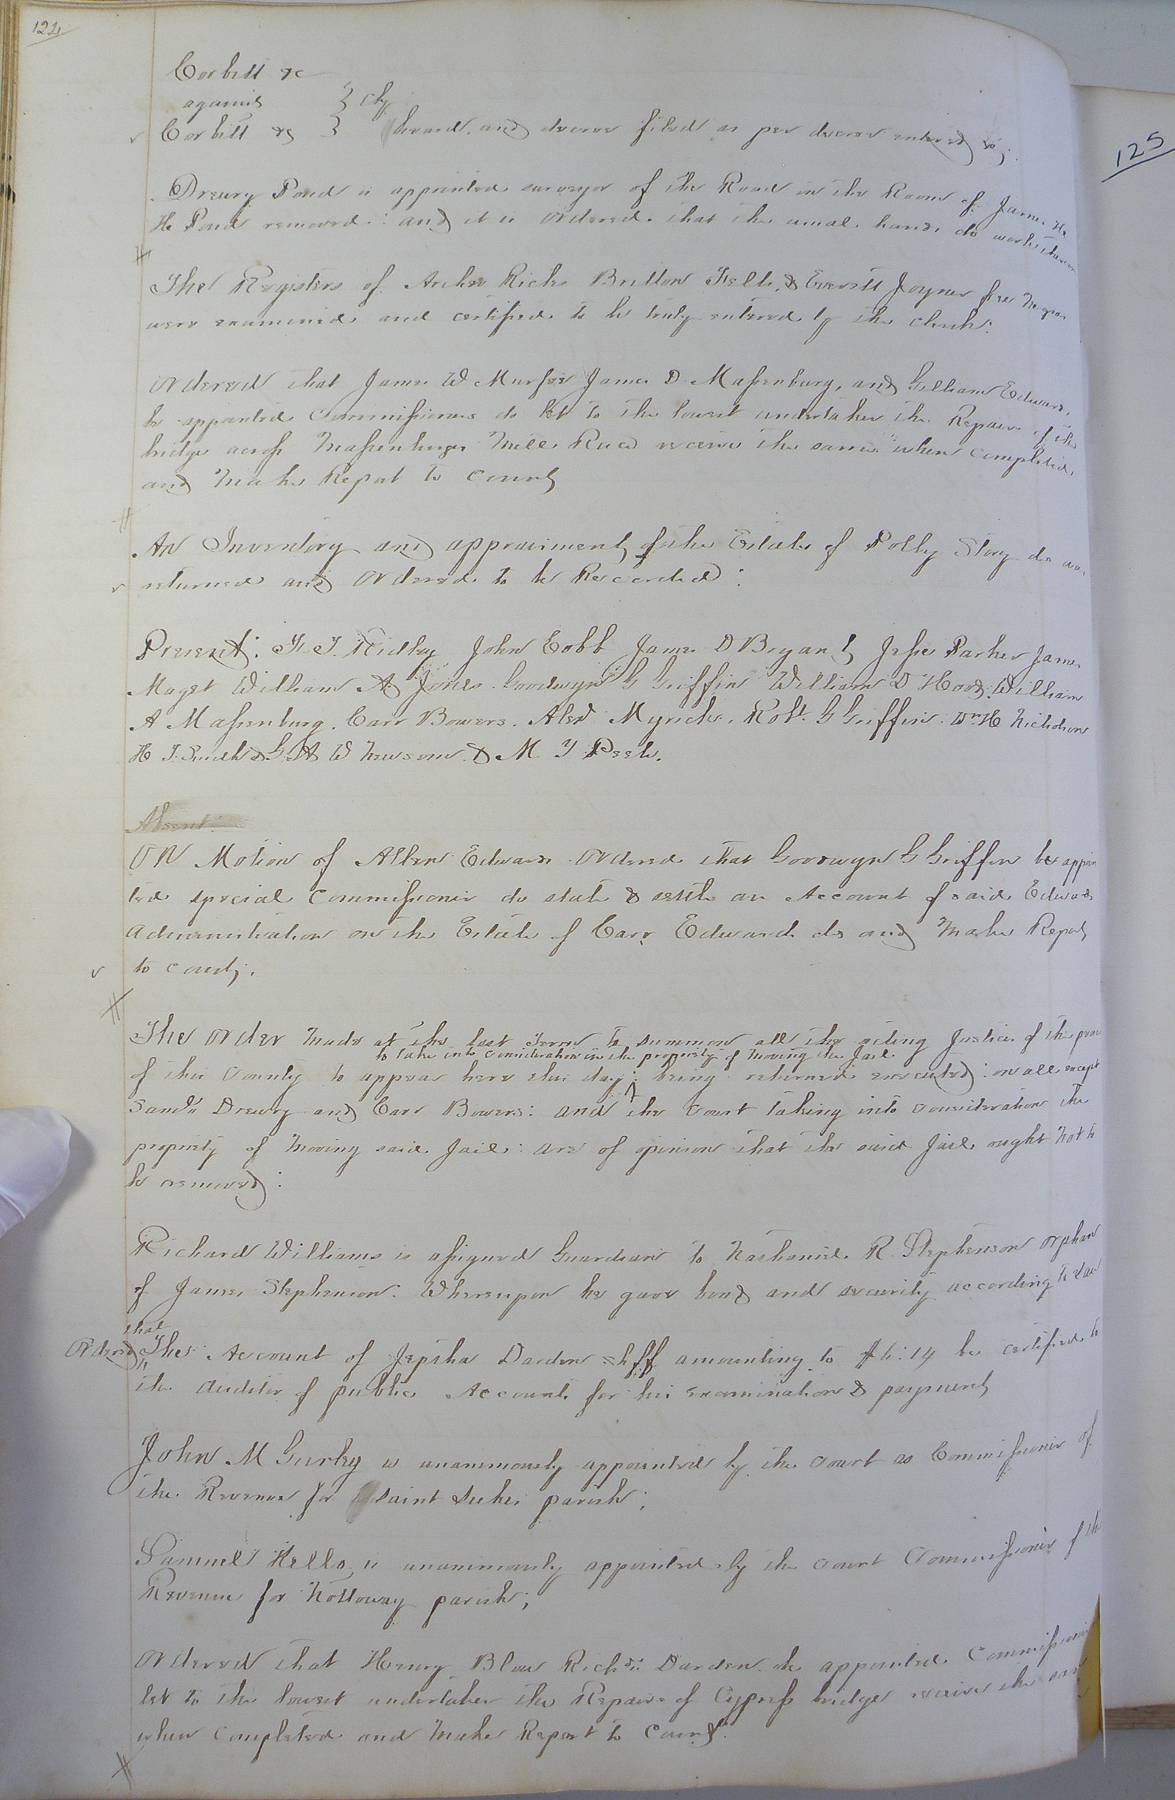 124
Corbitt &c
against } Chy
Corbitt &c } heard, and decree filed as per decree entered &c;
Drewry Pond is appointed surveyor of the Road in the Room of James H
H Pond removed: and it is Ordered that the usual hands do work thereon
The Registers of Archer Ricks Britton Fells, & Everitt Joyner free Negroes
were examined and certified to be truly entered by the clerk:
Ordered that James W Murfee James D Massenburg, and Gilliam Edwards,
be appointed Commissioners do let to the lowest undertaker the Repairs of the
bridge across Massenburgs Mill Race receive the same when completed,
and Make Report to Court
An Inventory and appraisment of the Estate of Polly Story de was
returned and Ordered to be Recorded:
Present: F. T. Ridley John Cobb James D Bryant Jesse Parker James
Maget William A Jones Goodwyn G Griffin William D Hood, William
A Massenburg, Carr Bowers, Alexr Myrick, Robt G Griffin, Wm H Nicholson
H T. Smith & G A W Newsom & M T Peete.
Absent:
ON Motion of Allen Edwards Ordered that Goodwyn G Griffin be appoin
ted special Commissioner do state & settle an Account of said Edwards
administration on the Estate of Carr Edwards de and Make Report
to court;
The Order Made at the last Term to summon all the acting Justices of the peace
to take into consideration the propriety of Moving the Jail
of this County to appear here this day; being returned executed: on all except
Saml Drewry and Carr Bowers: and the court taking into consideration the
propriety of Moving said Jail: are of opinion that the said Jail ought Not to
be removed:
Richard Williams is assigned Guardian to Nathaniel R Stephenson orphan
of James Stephenson. Whereupon he gave bond and security according to Law
that
Ordered The Account of Jeptha Darden shff amounting to $6:14 be certified to
the Auditor of public Accounts for his examination & payment
John M Gurley is unanimously appointed by the Court as Commissioner of
the Revenue for Saint Lukes parish;
Samuel Kello is unanimously appointed by the court Commissioner of the
Revenue for Nottoway parish;
Ordered that Henry Blow Richd Darden be appointed Commissioners
let to the lowest undertaker the Repairs of Cypress bridge receive the same
when completed and Make Report to Court.
125